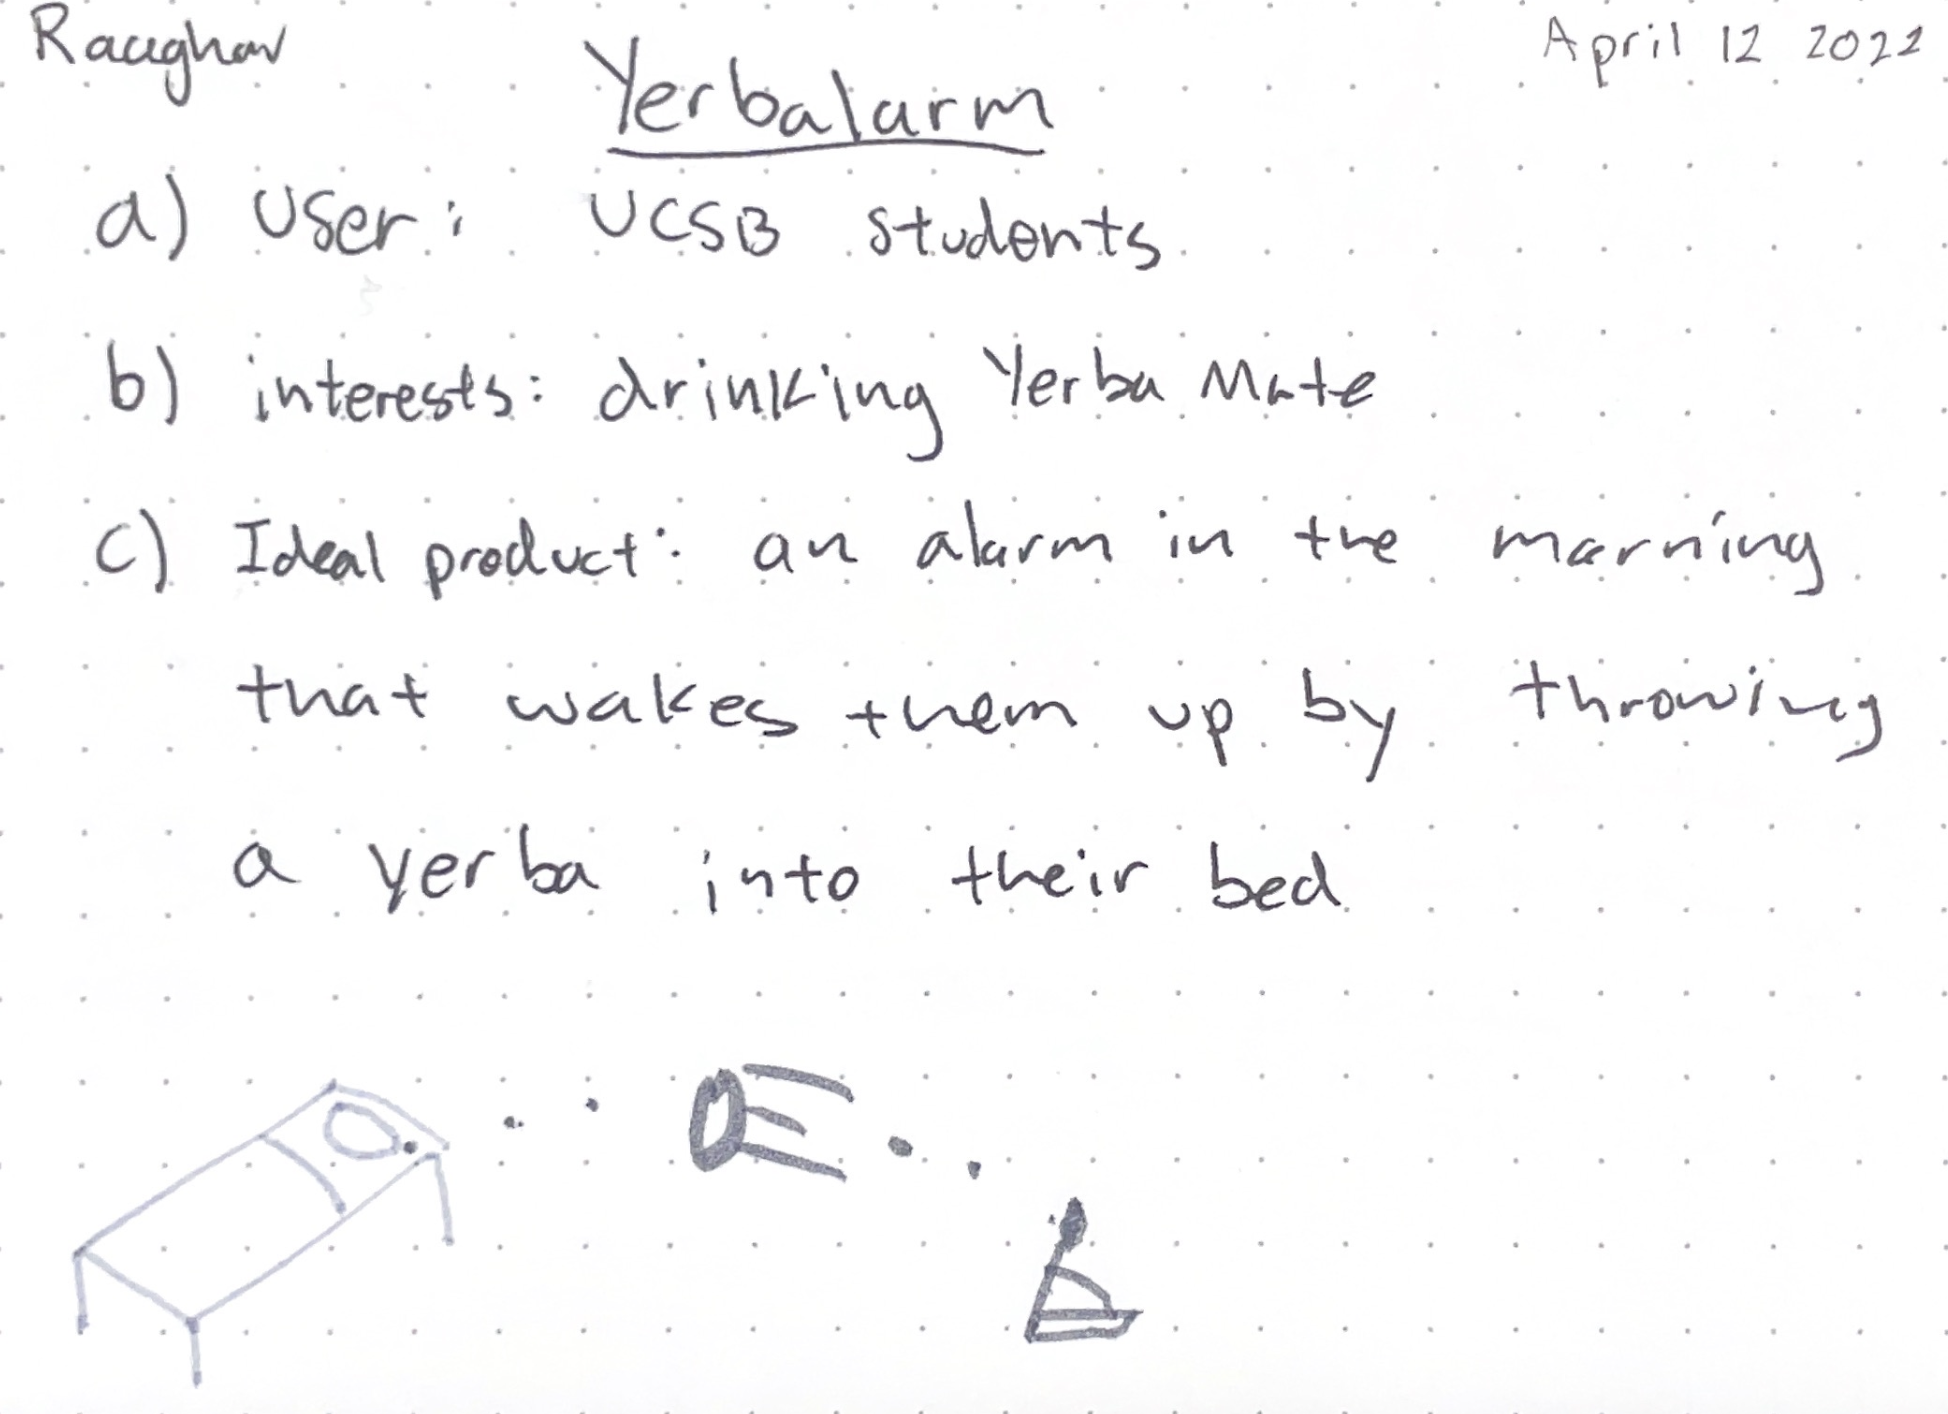 Raaghav April 12 2022
Yerbalarm
a) User: UCSB students
b) interests: drinking Yerba Mate
c) Ideal product: an alarm in the morning
that wakes them up by throwing
a yerba into their bed